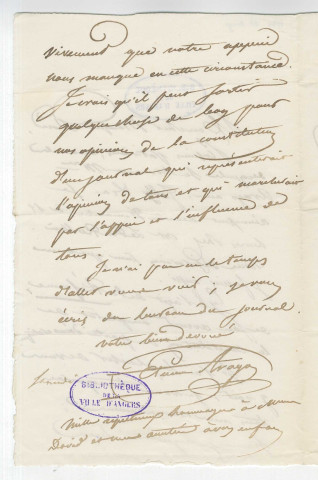 vivement que votre appui
nous manque en cette circonstance.
Je crois qu'il peut sortir
quelque chose de bon pour
nos opinions de la constitution
d'un journal qui représenterait
l'opinion de tous et qui marcherait
par l'appui et l'influence de
tous.
Je n'ai pas eu le temps
d'aller vous voir ; je vous
écris du bureau du journal.
votre bien dévoué
Etienne Arago
BIBLIOTHÈQUE
DE LA
VILLE D'ANGERS
Mille respectueux hommages à Mme
David et mes amitiés à vos enfans